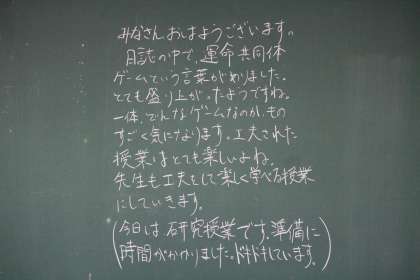 みなさん、おはようございます。
日誌の中で、運命共同体
ゲームという言葉がありました。
とても盛り上がったようですね。
一体、どんなゲームなのか、もの
すごく気になります。工夫された
授業はとても楽しいよね。
先生も工夫をして楽しく学べる授業
にしていきます。
(今日は研究授業です。準備に
時間がかかりました。ドキドキしています。)